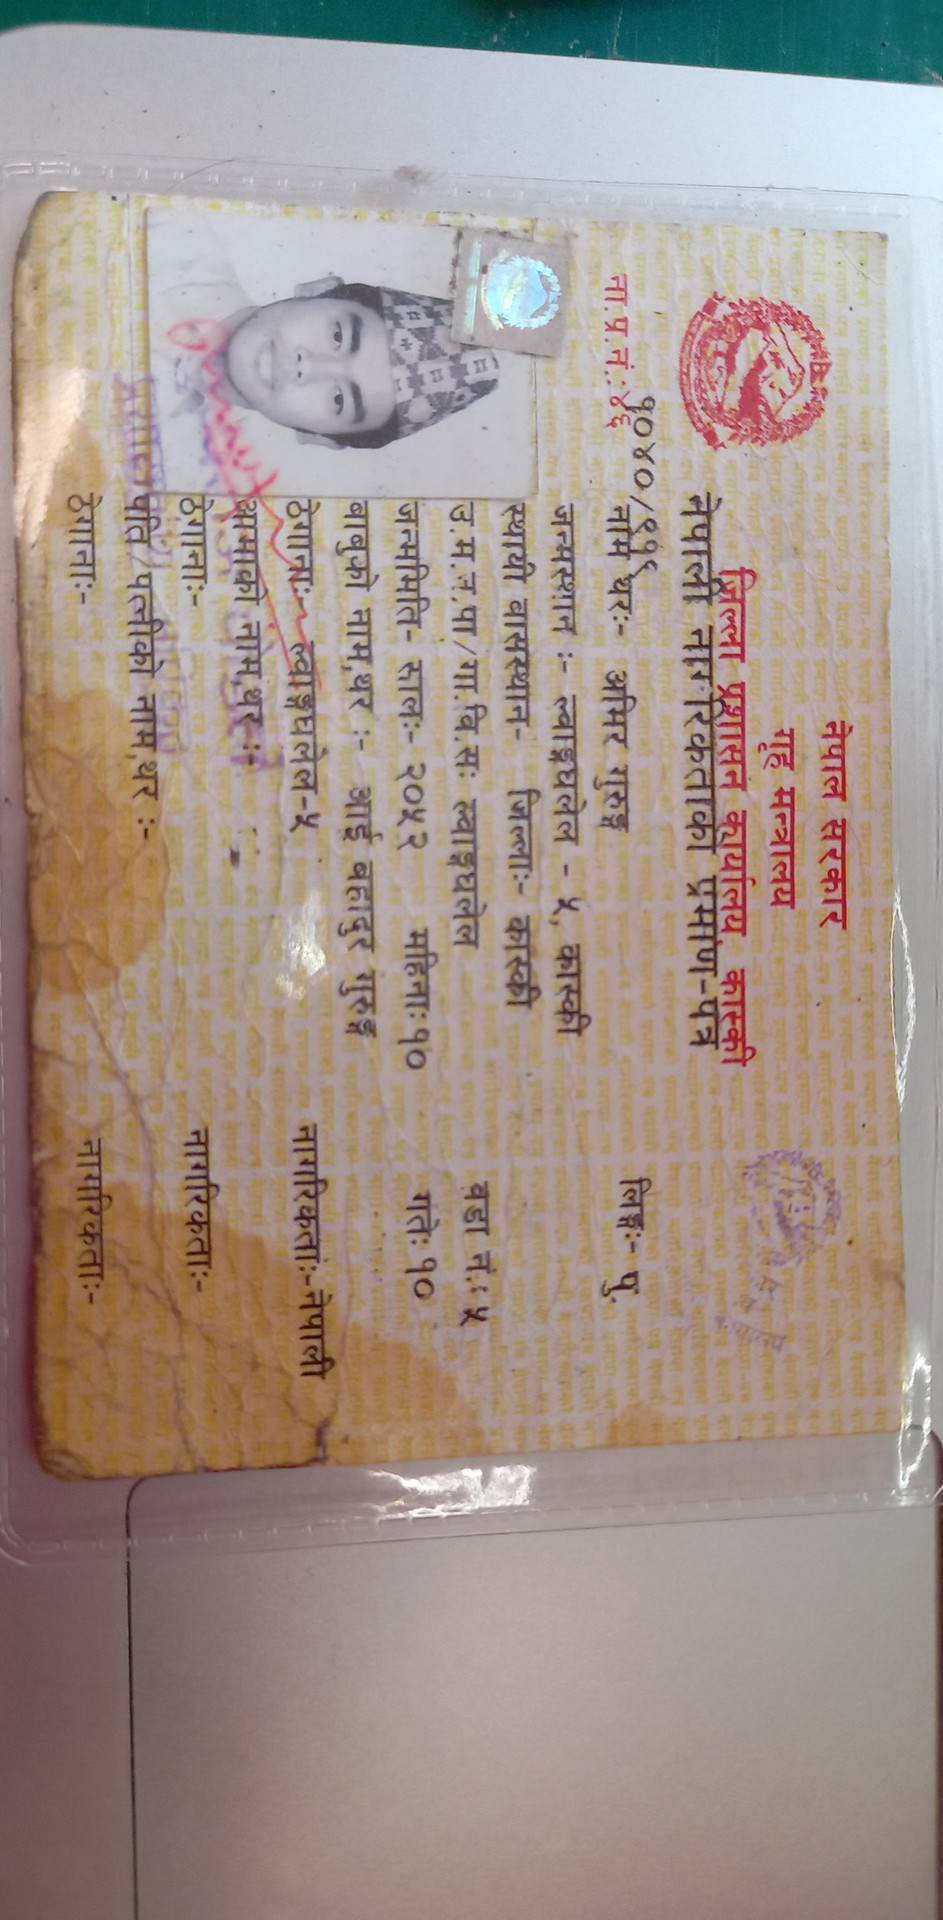 नेपाल सरकार
गृह मन्त्रालय
जिल्ला प्रशासन कार्यालय, कास्की
नेपाली नागरिकताको प्रमाण-पत्र
ना.प्र.नं.: ४६
नाम थरः- अमिर गुरुङ्ग लिङ्गः- पु.
जन्मस्थान :- ल्वाङ्घघलेल - ५, कास्की
स्थायी वासस्थान- जिल्लाः- कास्की
उ.म.न.पा/गा.वि.सः ल्वाङ्घघलेल वडा नं.: ५
जन्ममिति- सालः- २०५२ महिनाः १० गतेः १०
बाबुको नाम,थर :- आई बहादुर गुरुङ्ग
ठेगानाः- ल्वाङ्घघलेल-५ नागरिकताः- नेपाली
आमाको नाम,थर :-
ठेगानाः- नागरिकताः-
पति/पत्नीको नाम,थर :-
ठेगानाः- नागरिकताः-